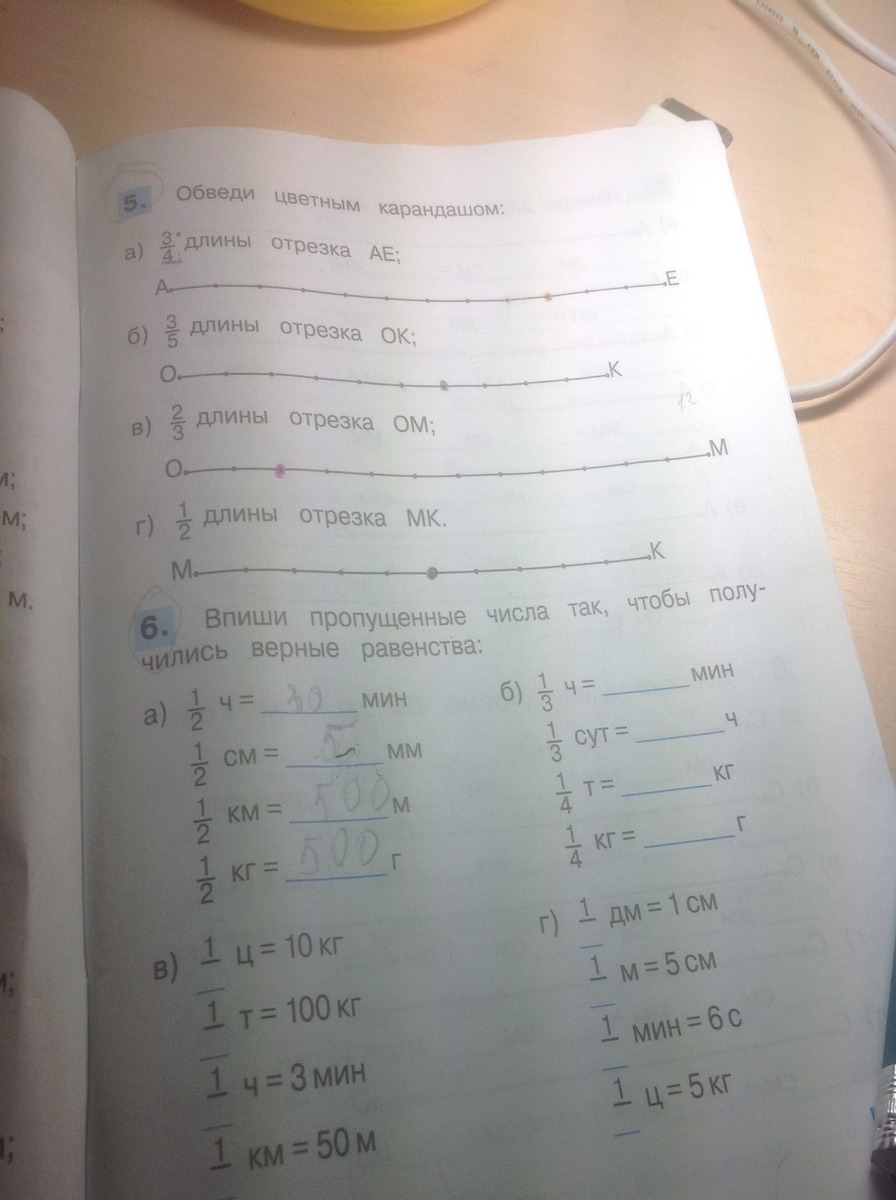 5. Обведи цветным карандашом:
а) 3/4 длины отрезка АЕ;
А Е
б) 3/5 длины отрезка ОК;
О К
в) 2/3 длины отрезка ОМ;
12
О М
г) 1/2 длины отрезка МК.
М К
6. Впиши пропущенные числа так, чтобы полу-
чились верные равенства:
а) 1/2 ч = 30 мин
1/2 см = 5 мм
1/2 км = 500 м
1/2 кг = 500 г
б) 1/3 ч = ____ мин
1/3 сут = ____ ч
1/4 т = ____ кг
1/4 кг = ____ г
в) 1/_ ц = 10 кг
1/_ т = 100 кг
1/_ ч = 3 мин
1/_ км = 50 м
г) 1/_ дм = 1 см
1/_ м = 5 см
1/_ мин = 6 с
1/_ ц = 5 кг
м;
м.